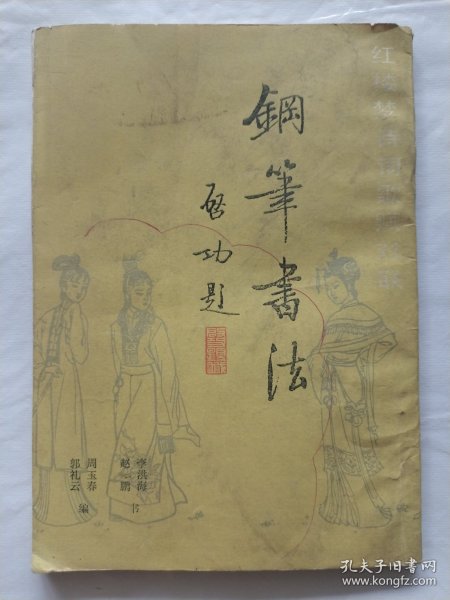 红楼梦诗词
鋼筆書法
启功题
李洪海
赵鹏 书
周玉春
郭礼云 编
孔夫子旧书网
www.kongfz.com